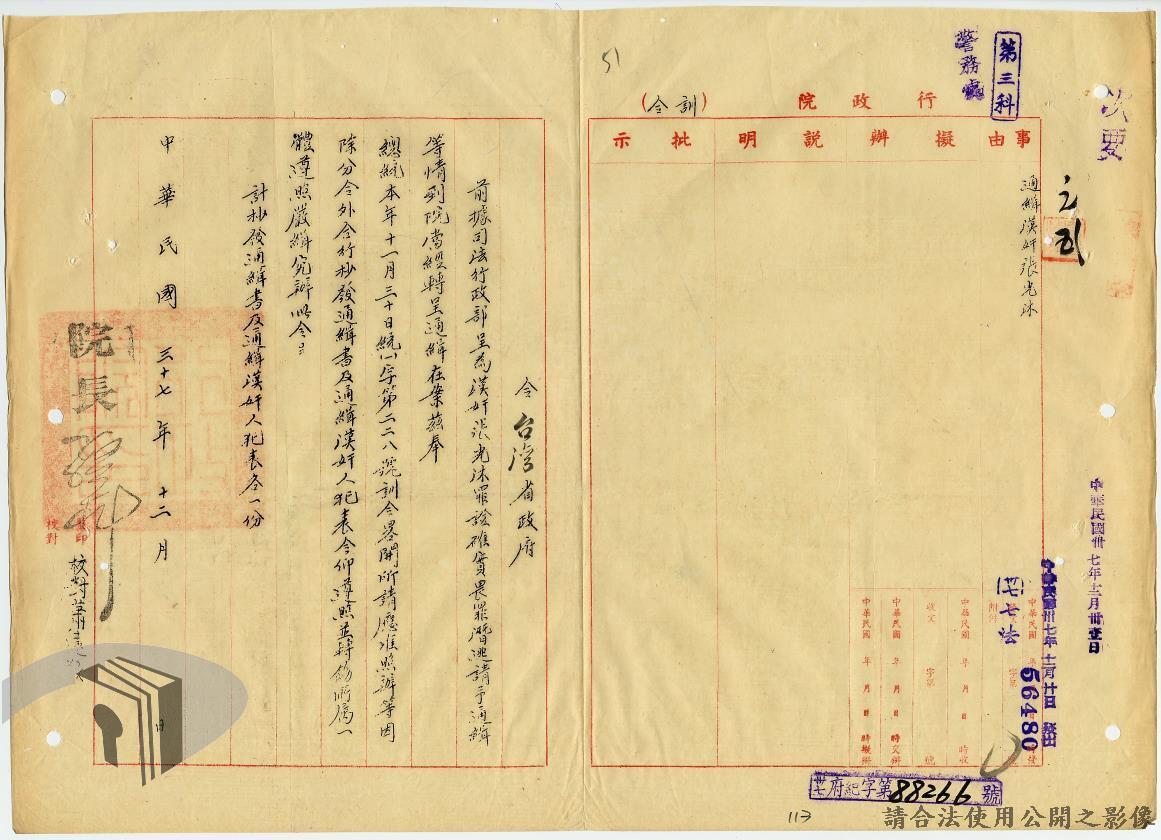 次要
第三科
警務處
51
行政院
(訓令)
事由
擬辦
說明
批示
通緝漢奸張光沐
中華民國卅七年十二月卅壹日
中華民國卅七年十二月廿日 發出
(卅七)七法
56480
附件
字第
中華民國 年 月 日 時收
收文 字第 號
中華民國 年 月 日 時交辦
中華民國 年 月 日 時擬辦
卅七府紀字第88266號
令台灣省政府
前據司法行政部呈為漢奸張光沐罪證確實畏罪潛逃請予通緝
等情到院當經轉呈通緝在案茲奉
總統本年十一月三十日統㈠字第二二八號訓令畧開所請應准照辦等因
除分令外合行抄發通緝書及通緝漢奸人犯表令仰遵照並轉飭所屬一
體遵照嚴緝究辦此令
計抄發通緝書及通緝漢奸人犯表各一份
中華民國三十七年十二月 日
院長
校對
監印
校對蕭
113
請合法使用公開之影像